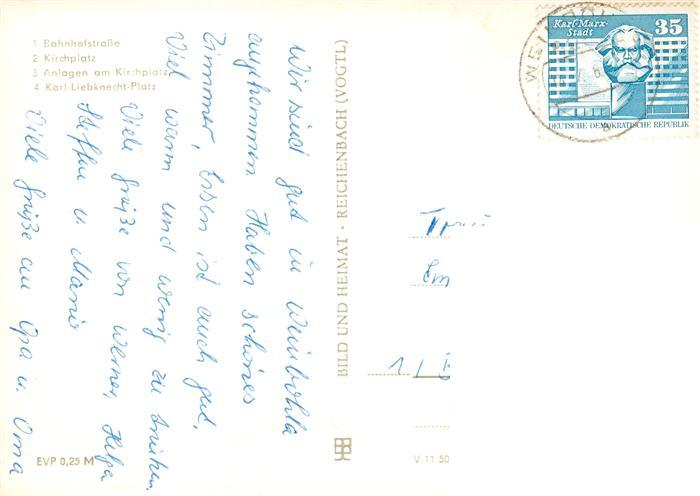 1 Bahnhofstraße
2 Kirchplatz
3 Anlagen am Kirchplatz
4 Karl-Liebknecht-Platz
Wir sind gut in Weinböhla
angekommen Haben schönes
Zimmer, Essen ist auch gut.
Viel warm und wenig zu trinken.
Viele Grüße von Werner, Helga
Steffen u. Mario
Viele Grüße an Opa u. Oma
EVP 0,25 M
BILD UND HEIMAT · REICHENBACH (VOGTL)
V 11 50
Karl-Marx-
Stadt
35
DEUTSCHE DEMOKRATISCHE REPUBLIK
1 / B